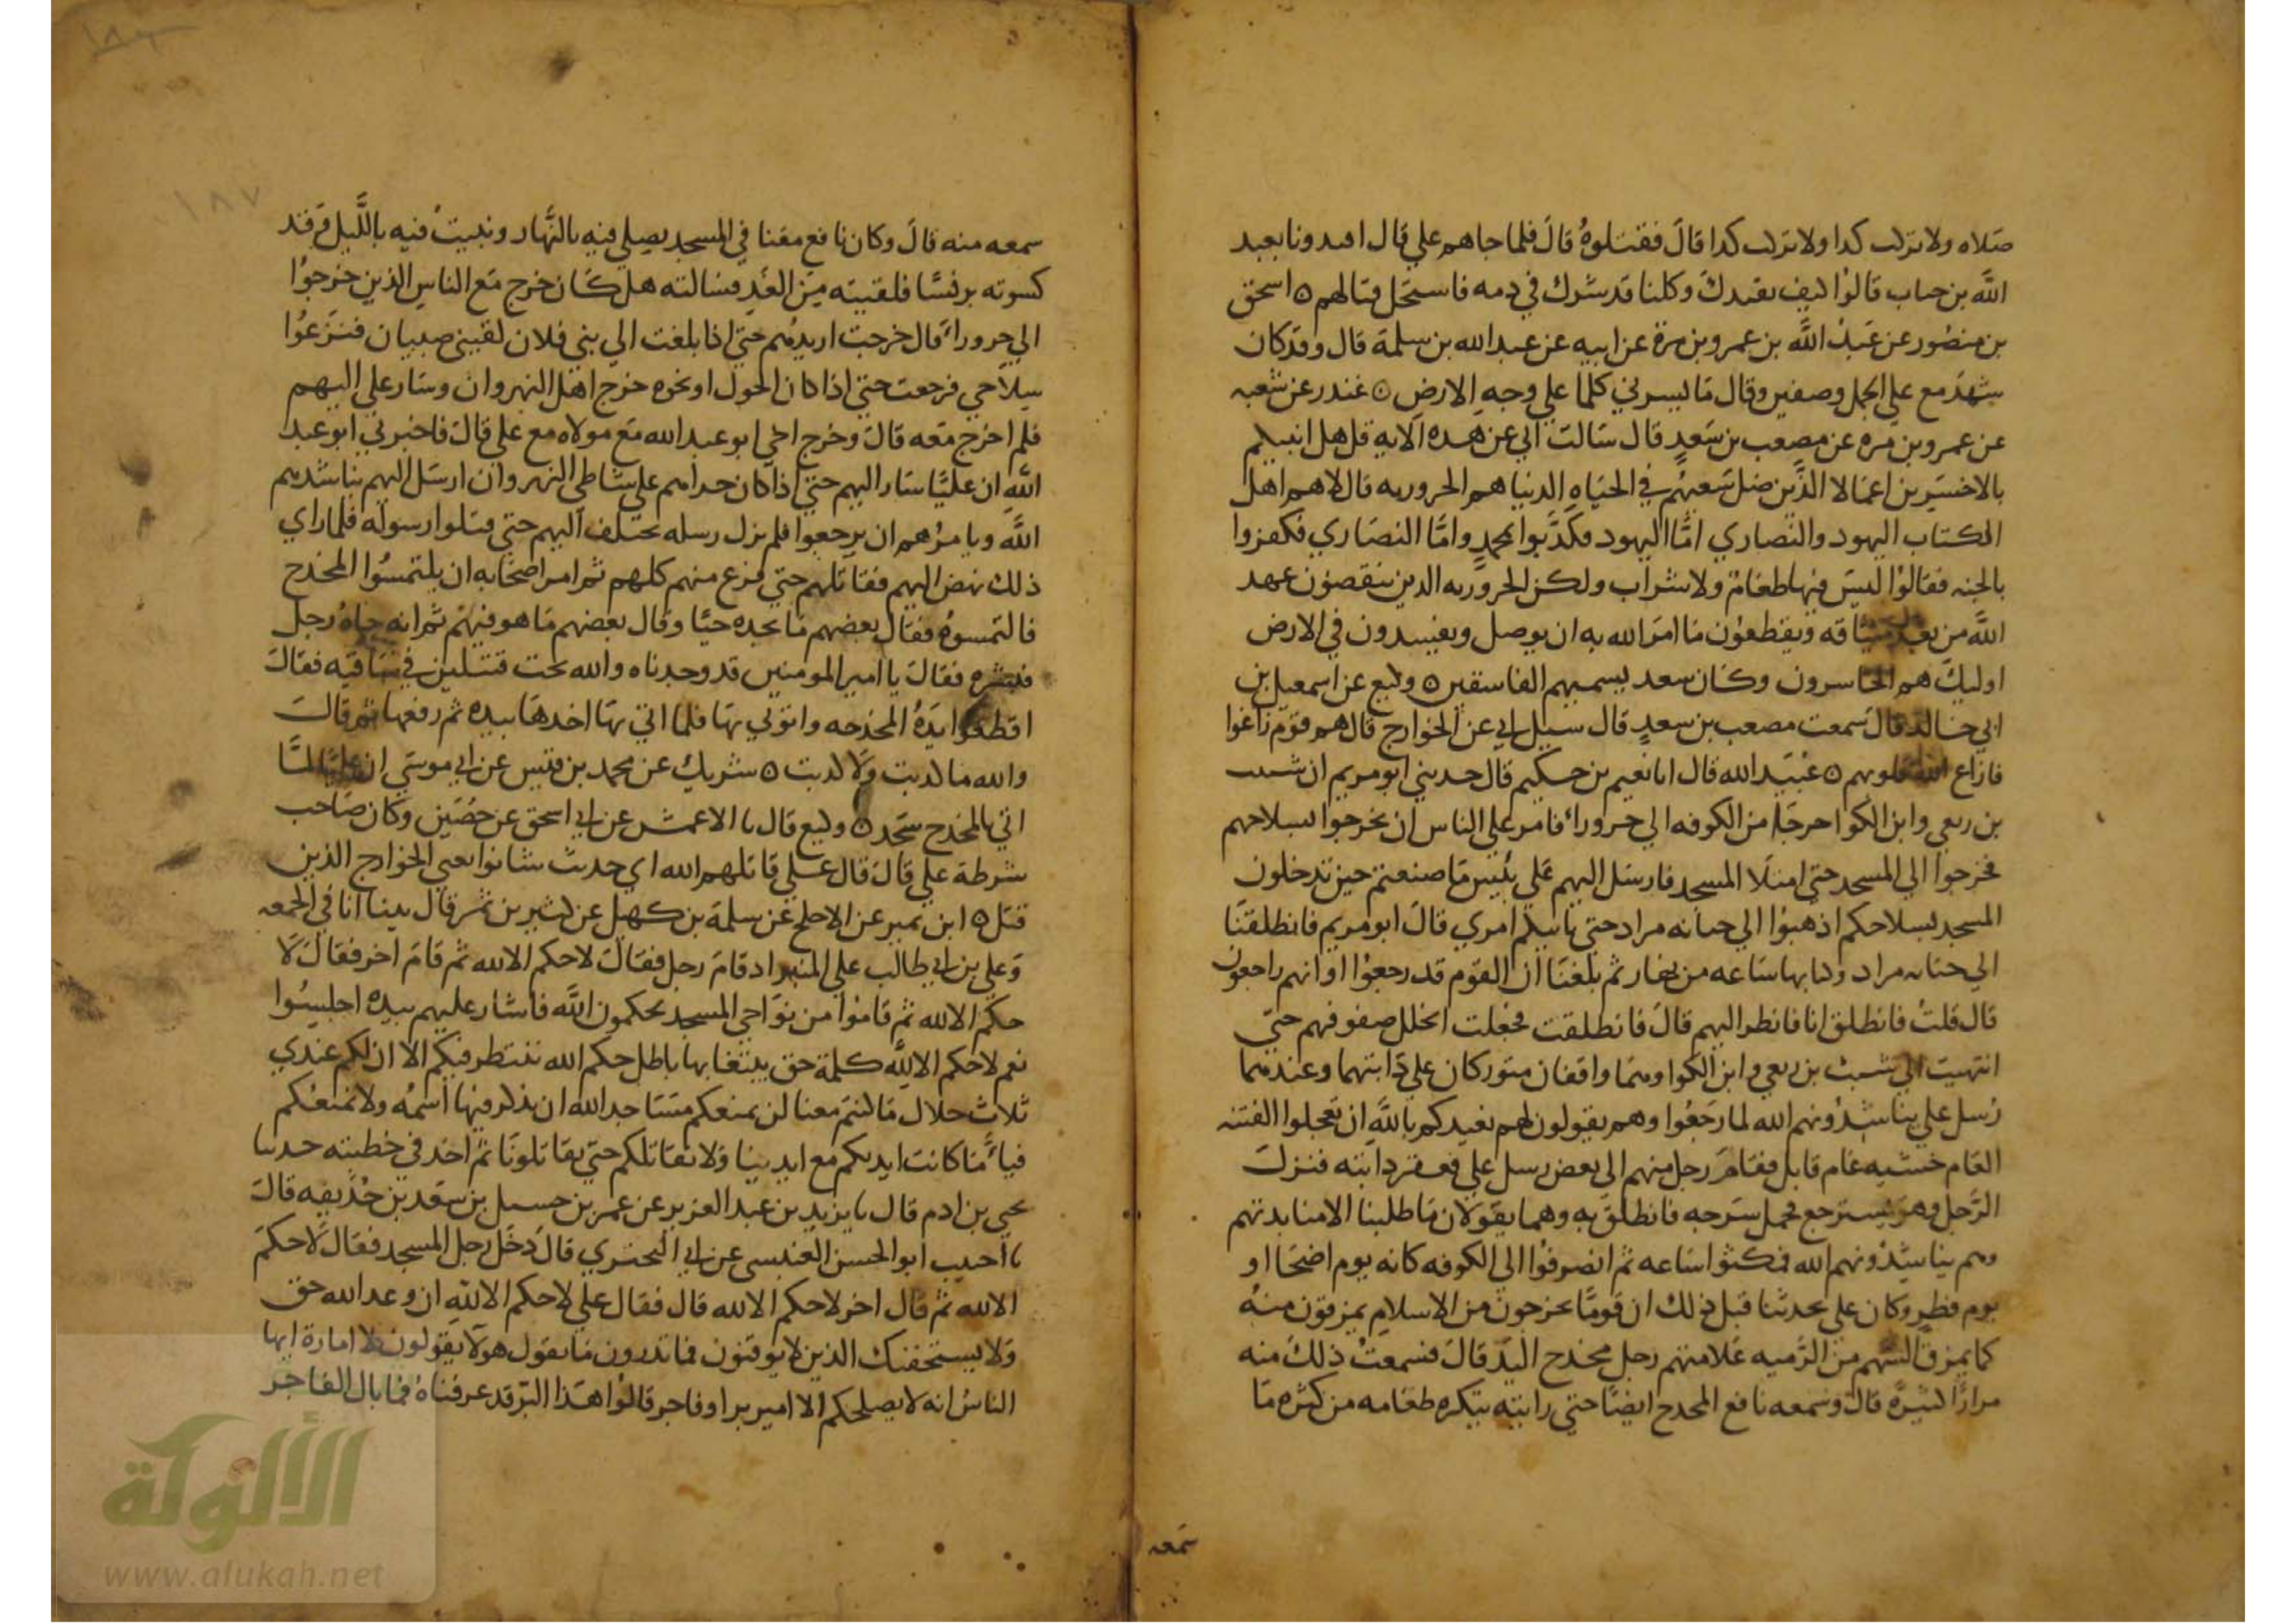 صلاه ولا نزلت كدا ولا نزلت كدا قال فقتلوهُ قال فلما جاهم علي قال اقيدونا بعبد
الله بن خباب قالوا كيف نقيدك وكلنا قد شرك في دمه فاستحل قتالهم ٥ اسحق
بن منصور عن عبد الله بن عمرو بن مرة عن ابيه عن عبد الله بن سلمة قال وقد كان
شهد مع علي الجمل وصفين وقال ما يسرني كلما علي وجه الارض ٥ غندر عن شعبه
عن عمرو بن مره عن مصعب بن سعد قال سالت ابي عن هده الايه قل هل انبيكم
بالاخسرين اعمالا الذين ضل سعيهم في الحياه الدنيا هم الحروريه قال لا هم اهل
الكتاب اليهود والنصاري اما اليهود فكذبوا بمحمد واما النصاري فكفروا
بالجنه فقالوا ليس فيها طعام ولا شراب ولكن الحروريه الدين ينقصون عهد
الله من بعد ميثاقه ويقطعون ما امر الله به ان يوصل ويفسدون في الارض
اوليك هم الخاسرون وكان سعد يسميهم الفاسقين ٥ وكيع عن اسمعيل بن
ابي خالد قال سمعت مصعب بن سعد قال سيل ابي عن الخوارج قال هم قوم زاغوا
فازاغ الله قلوبهم ٥ عبيد الله قال انا نعيم بن حكيم قال حدثني ابو مريم ان شبث
بن ربعي وابن الكوا خرجا من الكوفه الي حرورا فامر علي الناس ان يخرجوا بسلاحهم
فخرجوا الي المسجد حتي امتلا المسجد فارسل اليهم علي بئس ما صنعتم حين تدخلون
المسجد بسلاحكم اذهبوا الي جبانه مراد حتي ياتيكم امري قال ابو مريم فانطلقنا
الي جبانه مراد وكنا بها ساعه من نهار ثم بلغنا ان القوم قد رجعوا او انهم راجعون
قال قلت فانطلق انا فانظر اليهم قال فانطلقت فجعلت اتخلل صفوفهم حتي
انتهيت الي شبث بن ربعي وابن الكوا وهما واقفان متوركان علي دابتهما وعندهما
رسل علي يناشدونهم الله لما رجعوا وهم يقولون لهم نعيدكم بالله ان تعجلوا الفتنه
العام خشيه عام قابل فقام رجل منهم الي بعض رسل علي فعقر دابته فنزل
الرجل وهو يسترجع فحمل سرجه فانطلق به وهما يقولان ما طلبنا الا منابدتهم
وهم يناشدونهم الله فمكثوا ساعه ثم انصرفوا الي الكوفه كانه يوم اضحا او
يوم فطر وكان علي يحدثنا قبل ذلك ان قوما يخرجون من الاسلام يمرقون منه
كما يمرق السهم من الرميه علامتهم رجل مخدج اليد قال فسمعت ذلك منه
مرارا كثيرة قال وسمعه نافع المخدج ايضا حتي رايته يتكره طعامه من كثره ما
سمعه
سمعه منه قال وكان نافع معنا في المسجد يصلي فيه بالنهار ونبيت فيه بالليل وقد
كسوته برنسا فلقيته من الغد فسالته هل كان خرج مع الناس الذين خرجوا
الي حرورا قال خرجت اريدهم حتي اذا بلغت الي بني فلان لقيني صبيان فنزعوا
سلاحي فرجعت حتي اذا كان الحول او نحوه خرج اهل النهروان وسار علي اليهم
فلم اخرج معه قال وخرج اخي ابو عبد الله مع مولاه مع علي قال فاخبرني ابو عبد
الله ان عليا سار اليهم حتي اذا كان حداهم علي شاطي النهروان ارسل اليهم يناشدهم
الله ويامرهم ان يرجعوا فلم تزل رسله تختلف اليهم حتي قتلوا رسوله فلما راي
ذلك نهض اليهم فقاتلهم حتي فرغ منهم كلهم ثم امر اصحابه ان يلتمسوا المخدج
فالتمسوه فقال بعضهم ما نجده حيا وقال بعضهم ما هو فيهم ثم انه جاه رجل
فبشره فقال يا امير المومنين قد وجدناه والله تحت قتيلين في ساقيه فقال
اقطعوا يده المخدجه واتوني بها فلما اتي بها اخدها بيده ثم رفعها ثم قال
والله ما كدبت ولا كدبت ٥ شريك عن محمد بن قيس عن ابي موسي ان عليا لما
اتي بالمخدج سجد ٥ وكيع قال نا الاعمش عن ابي اسحق عن حصين وكان صاحب
شرطة علي قال قال علي قاتلهم الله اي حديث شانوا يعني الخوارج الذين
قتل ٥ ابن نمير عن الاجلح عن سلمة بن كهيل عن كثير بن نمر قال بينا انا في الجمعه
وعلي بن ابي طالب علي المنبر اد قام رجل فقال لا حكم الا لله ثم قام اخر فقال لا
حكم الا لله ثم قاموا من نواحي المسجد يحكمون الله فاشار عليهم بيده اجلسوا
نعم لا حكم الا لله كلمة حق يبتغا بها باطل حكم الله ننتظر فيكم الا ان لكم عندي
ثلاث خلال ما كنتم معنا لن نمنعكم مساجد الله ان يذكر فيها اسمه ولا نمنعكم
فيا ما كانت ايديكم مع ايدينا ولا نقاتلكم حتي تقاتلونا ثم اخد في خطبته حدثنا
يحيي بن ادم قال نا يزيد بن عبد العزيز عن عمر بن حسيل بن سعد بن حذيفه قال
نا حبيب ابو الحسن العبسي عن ابي البختري قال دخل رجل المسجد فقال لا حكم
الا لله ثم قال اخر لا حكم الا لله قال فقال علي لا حكم الا لله ان وعد الله حق
ولا يستخفنك الذين لا يوقنون فما تدرون ما يقول هولا يقولون لا امارة ايها
الناس انه لا يصلحكم الا امير بر او فاجر قالوا هذا البر قد عرفناه فما بال الفاجر
١٨٧
الألوكة
www.alukah.net